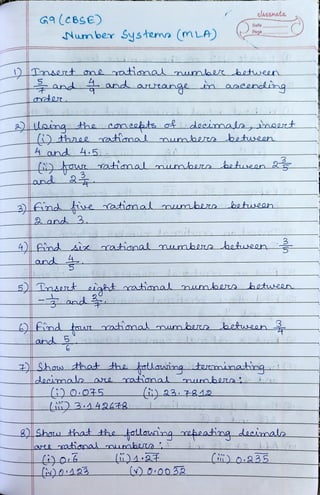 classmate
Date
Page
G9 (CBSE)
Number Systems (MLA)
1) Insert one rational number between
5/7 and 4/9 and arrange in ascending
order.
2) Using the concepts of decimals, insert
(i) three rational numbers between
4 and 4.5.
(ii) four rational numbers between 2 3/5
and 2 3/4
3) Find five rational numbers between
2 and 3.
4) Find six rational numbers between 3/5
and 4/5.
5) Insert eight rational numbers between
-1/3 and 2/7.
6) Find four rational numbers between 3/4
and 5/6
7) Show that the following terminating
decimals are rational numbers:
(i) 0.075 (ii) 23.7812
(iii) 3.142678
8) Show that the following repeating decimals
are rational numbers:
(i) 0.6̅ (ii) 1.2̅7̅ (iii) 0.2̅3̅5̅
(iv) 0.1̅2̅3̅ (v) 0.003̅2̅